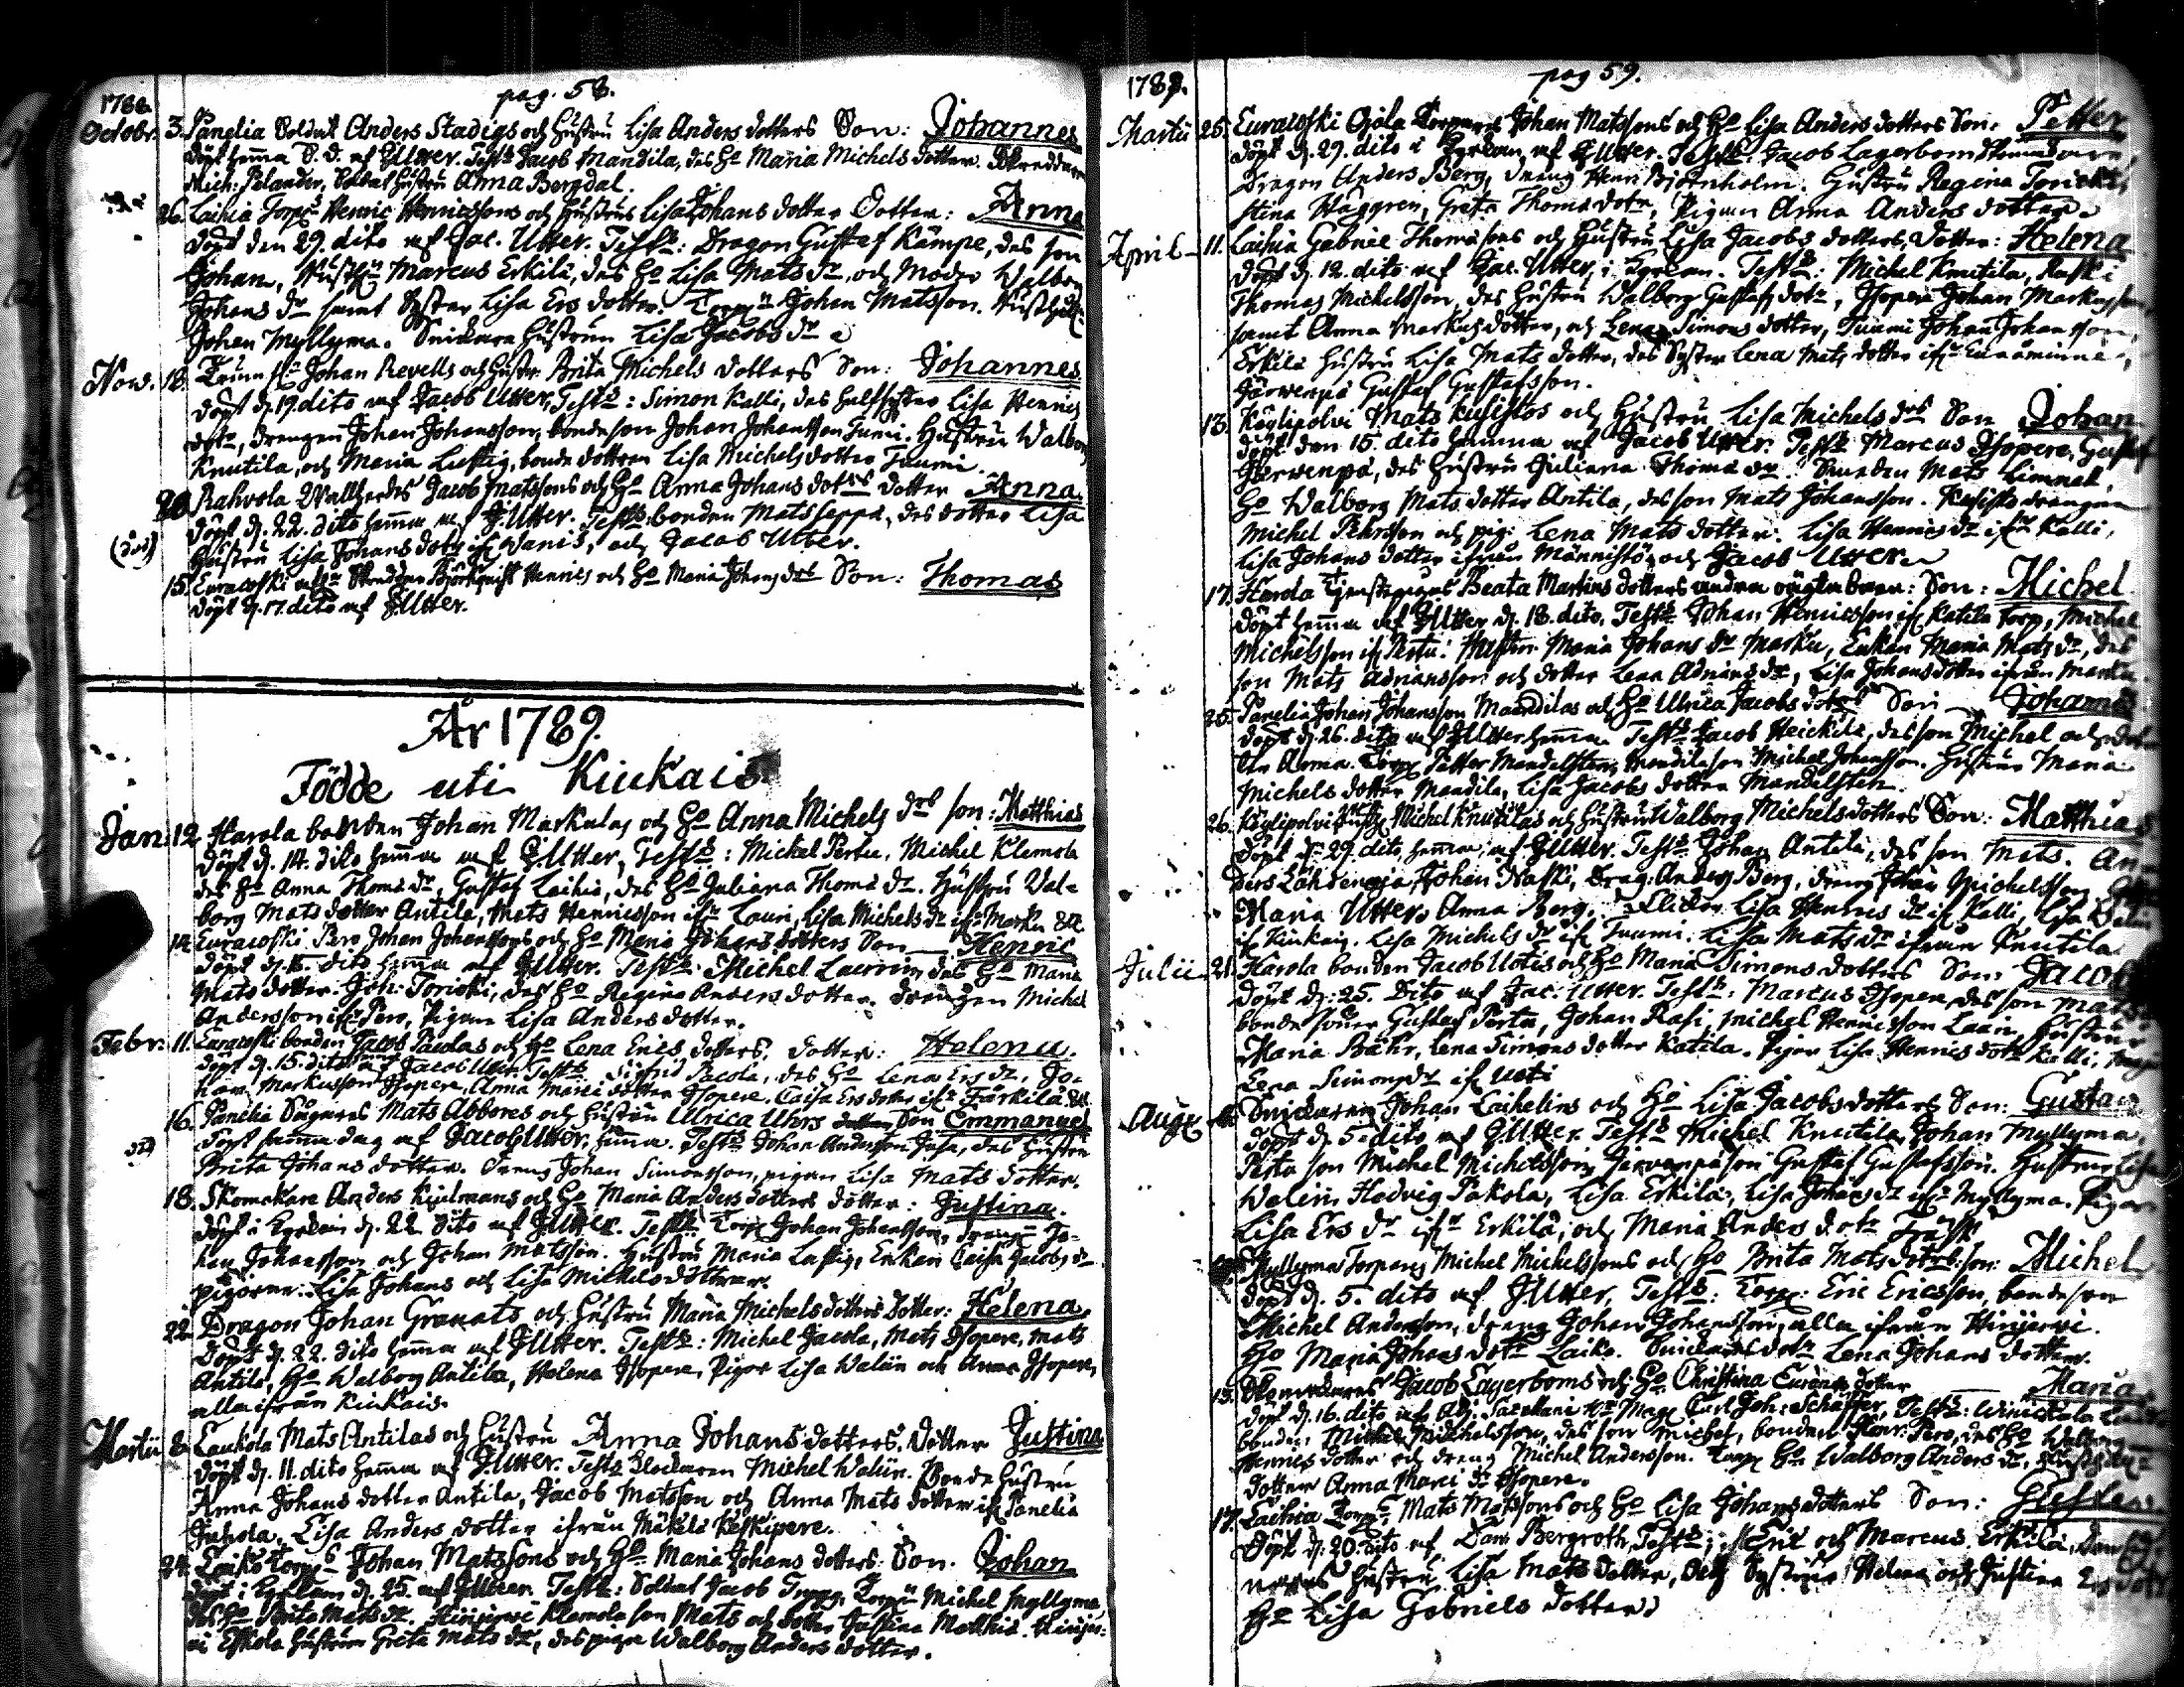 pag. 58.
1788.
Octobr. 3. Panelia Soldat Anders Stadigs och Hustru Lisa Anders dotters Son: Johannes
döpt hema S. D. af J Utter. Test: Jacob Mandila, des H Maria Michels dotter. Skreddare
Mich: Pelander, Soldat Hustru Anna Bergdal.
26. Laihia Torp Henric Henricssons och Hustrus Lisa Johans dotter Dotter: Anna
döpt den 29. dito af Jac. Utter. Test: Dragon Gustaf Kämpe, des son
Johan, Marcus Erkilä, des H Lisa Mats dr, och Moder Walbor
Johans dr samt Syster Lisa Ers dotter. Johan Matsson.
Johan Myllyma. Snickare Hustrun Lisa Jacobs dr
Nov. 18. Johan Revells och Hustr. Brita Michels dotters Son: Johannes
döpt d. 19. dito af Jacob Utter, Test: Simon Kalli, des halfsyster Lisa Henrics
dotr, drengen Johan Johansson, bondeson Johan Johansson Tuomi. Hustru Walborg
Knutila, och Maria Lustig, bonde dottren Lisa Michelsdotter Tuomi.
20. Rahvola Wallherdes Jacob Matssons och H Anna Johans dotrs dotter Anna.
döpt d. 22. dito hema af J. Utter. Test: bonden Mats Seppä, des dotter Lisa
Hustru Lisa Johans dotr if Wanis, och Jacob Utter.
15. Euracoski Björkqvist Henrics och H Maria Johans drs Son: Thomas
döpt d. 17. dito af J Utter.
År 1789.
Födde uti Kiukais
Jan. 12 Harola bonden Johan Markulas och H Anna Michels drs son: Matthias
döpt d. 14. dito hema af J Utter, Test: Michel Pertu, Michel Klemola
des H Anna Thoms dr, Gustaf Laihia, des H Juliana Thoms dr. Hustru Wal-
borg Mats dotter Antila, Mats Henricsson if Lauri, Lisa Michels dr if Marku &c.
14. Euracoski Pero Johan Johanssons och H Maria Johans dotters Son Henric
döpt d. 15. dito hema af J Utter. Test: Michel Lacrin, des H Maria
Mats dotter. Joh: Torioki, des H Regina Anders dotter. drengen Michel
Andersson if Pero, Pigan Lisa Anders dotter.
Febr: 11. Euracoski bonden Jacob Pacolas och H Lena Erics dotters. dotter: Helena.
döpt d. 15. dito af Jacob Utter. Test: Sigfrid Pacola, des H Lena Ers dr, Jo-
han Markusson Isopere, Anna Marci dotter Isopere. Caisa Ers dotter if Tärkilä &c.
16. Panelia Mats Abbores och Hustrun Ulrica Uhrs Son Emmanuel
döpt samma dag af Jacob Utter, hema. Test: Johan Andersson Jasa, des Hustru
Brita Johans dotter. dreng Johan Simonsson, pigan Lisa Mats dotter.
18. Skomakare Anders Kjulmans och H Maria Anders dotters dotter: Justina.
döpt i Kyrkan d. 22. dito af J Utter. Test: Torp Johan Johansson, dreng Jo-
han Johansson och Johan Matsson. Hustru Maria Lustig, Enkan Caisa Jacobs dr
pigorne: Lisa Johans och Lisa Michelsdöttrar.
22. Dragon Johan Granats och Hustru Maria Michelsdotters Dotter: Helena.
döpt d. 22. dito hema af J Utter. Test: Michel Jacola, Mats Isopere, Mats
Antila, H Walborg Antila, Helena Isopere, Pigor Lisa Walin och Anna Isopere,
alla ifrån Kiukais.
Martii 8. Laukola Mats Antilas och Hustru Anna Johans dotters. Dotter Justina
döpt d. 11. dito hema af J Utter. Test: Klockaren Michel Walin. Bonde Hustru
Anna Johans dotter Antila, Jacob Matsson och Anna Mats dotter if Panelia
Juhola. Lisa Anders dotter ifrån Mäkelä Keskipere.
24. Laiko Torp Johan Matssons och H Maria Johans dotters Son. Johan
döpt i Kyrkan d. 25. af J Utter. Test: Soldat Jacob Trygg, Torp Michel Myllyma,
des H Brita Mats dr. Hinjerwi Klemola son Mats och dotter Justina Matthis. Hinjer-
vi Eskola Hustrun Greta Mats dr, des piga Walborg Anders dotter.
pag 59.
1789.
Martii 25. Euracoski Ojala Johan Matssons och H Lisa Anders dotters Son: Petter
döpt d. 29. dito i Kyrkan af J Utter. Test: Jacob Lagerbom
Dragon Anders Berg, dreng Henr: Björnholm. Hustru Regina Torioki,
Stina Haggren, Greta Thoms dotr, Pigan Anna Anders dotter.
April 11. Laihia Gabriel Thomassons och Hustru Lisa Jacobs dotters, Dotter: Helena
döpt d. 12. dito af Jac. Utter, i Kyrkan. Test: Michel Knutila,
Thomas Michelsson, des Hustru Walborg Gustafs dotr, Isopere Johan Markusson,
samt Anna Markus dotter, och Lena Simons dotter, Tuomi Johan Johansson,
Erkilä Hustru Lisa Mats dotter, des Syster Lena Mats dotter if Euraminne,
Järvenpä Gustaf Gustafsson.
13. Köylipolvi Mats Kusistos och Hustru Lisa Michels drs Son Johan
döpt den 15. dito hemma af Jacob Utter. Test: Marcus Isopere, Gustaf
Jerwenpä, des Hustru Juliana Thoms dr. Mats Limnell,
H Walborg Mats dotter Antila, des son Mats Johansson. Kusisto drengen
Michel Pehrsson och pig. Lena Mats dotter. Lisa Henrics dr if Kalli,
Lisa Johans dotter ifrån Männistö, och Jacob Utter.
17. Harola Beata Martins dotters andra oägta barn: Son: Michel.
döpt hema af J Utter d. 18. dito. Test: Johan Henricsson if Katila torp, Michel
Michelsson if Pertu: Maria Johans dr Marku, Enkan Maria Mats dr, des
son Mats Adriansson och dotter Lena Adrians dr, Lisa Johansdotter ifrån Marku.
25. Panelia Johan Johansson Mandilas och H Ulrica Jacobs dotrs Son Johannes
döpt d. 26. dito af J Utter hema. Test: Jacob Heickilä, des son Michel och dot-
ter Anna. Torp Petter Mandelsten, Mandila son Michel Johansson. Hustru Maria
Michels dotter Mandila, Lisa Jacobs dotter Mandelsten.
26. Köylipolvi Michel Knutilas och Hustrun Walborg Michelsdotters Son: Matthias
döpt d. 29. dito, hema, af J Utter. Test: Johan Antila, des son Mats. An-
ders Lähdenoja, Johan Naski, Drag: Anders Berg, dreng Johan Michelsson
Maria Utter, Anna Berg, Flickor Lisa Henrics dr if Kalli, Lisa
if Kiukais. Lisa Michels dr if Tuomi. Lisa Mats dr ifrån Knutila.
Julii 21. Harola bonden Jacob Uotis och H Maria Simons dotters Son: Jacob
döpt d: 25. dito af Jac. Utter. Test: Marcus Isopere, des son Mats
bonde söner Gustaf Pertu, Johan Rasi, Michel Henricsson Lauri, Hustru
Maria Bähr, Lena Simons dotter Katila. Pigor Lisa Henrics dotr Kalli,
Lena Simons dr if Uoti
Aug. Snickaren Johan Laihelins och H Lisa Jacobsdotters Son: Gustav
döpt d. 5. dito af J Utter. Test: Michel Knutila, Johan Myllyma,
Pertu son Michel Michelsson, Järvenpä son Gustaf Gustafsson. Hustrur Lisa
Walin, Hedvig Pakola, Lisa Erkilä, Lisa Johans dr if Myllyma. Pigor
Lisa Ers dr if Erkilä, och Maria Anders dotr Träsk
Myllyma Torpar Michel Michelssons och H Brita Mats dotrs son: Michel
döpt d. 5. dito af J Utter. Test: Torp: Eric Ericsson, bondeson
Michel Andersson, dreng Johan Johansson, alla ifrån Hinjerwi.
H Maria Johans dotr Laiko. Lena Johans dotter.
15. Skomakares Jacob Lagerboms och H Christina dotter Maria
döpt d. 16. dito af Adj. Mag Carl Joh: Schäffer, Test:
bonden Michel Michelsson, des son Michel, bonden Henr: Pero, des H Walborg
Henrics dotter och dreng Michel Andersson. Torp H Walborg Anders dr,
dotter Anna Marci dr Isopere.
17. Laihia Torp Mats Matssons och H Lisa Johans dotters Son: Gustav
döpt d: 20. dito af Bergroth, Test: Eric och Marcus Erkilä,
Hustru Lisa Mats dotter, Systrar Helena och Justina Ers dotr
H Lisa Gabriels dotter.